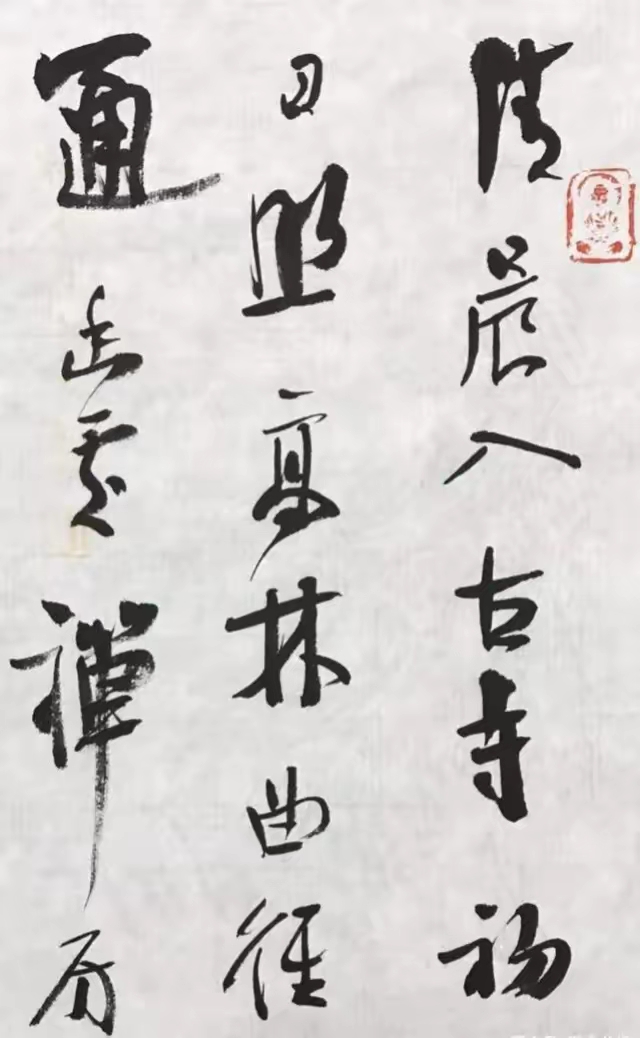 清晨入古寺初
日照高林曲径
通幽处禅房